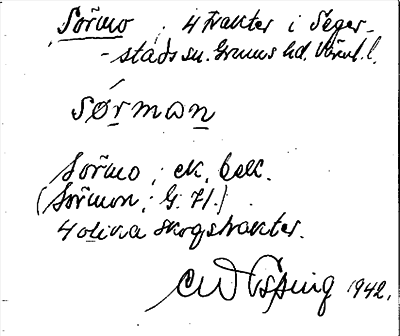 Sörmo, 4 trakter i Seger-
-stads sn. Grums hd. Värml. l.
Sørman
Sörmo, ek. bek.
(Sörmon, G. 71.)
4 olika skogstrakter.
1942.